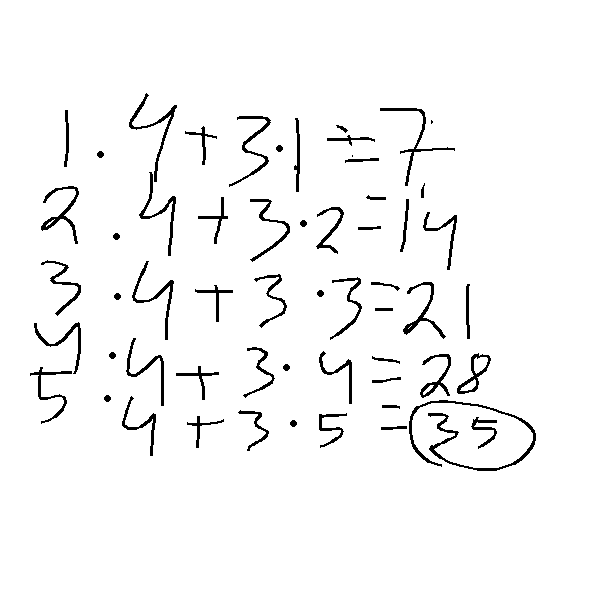 1 · 4 + 3 · 1 = 7
2 · 4 + 3 · 2 = 14
3 · 4 + 3 · 3 = 21
4 · 4 + 3 · 4 = 28
5 · 4 + 3 · 5 = 35